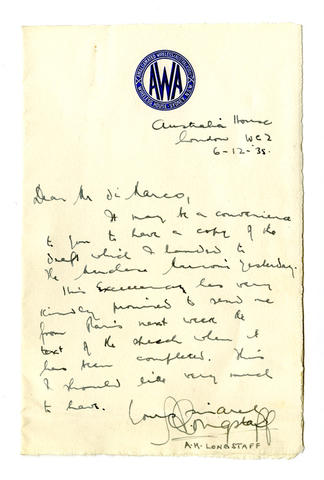 AMALGAMATED WIRELESS (AUSTRALASIA) LTD
AWA
WIRELESS HOUSE, SYDNEY, N.S.W.
Australia House
London WC2
6-12-35.
Dear Mr di Marco,
It may be a convenience
to you to have a copy of the
draft which I handed to
the Marchese Marconi yesterday.
His Excellency has very
kindly promised to send me
from Paris next week the
text of the speech when it
has been completed. This
I should like very much
to have.
Yours sincerely
A K Longstaff
A.K. LONGSTAFF